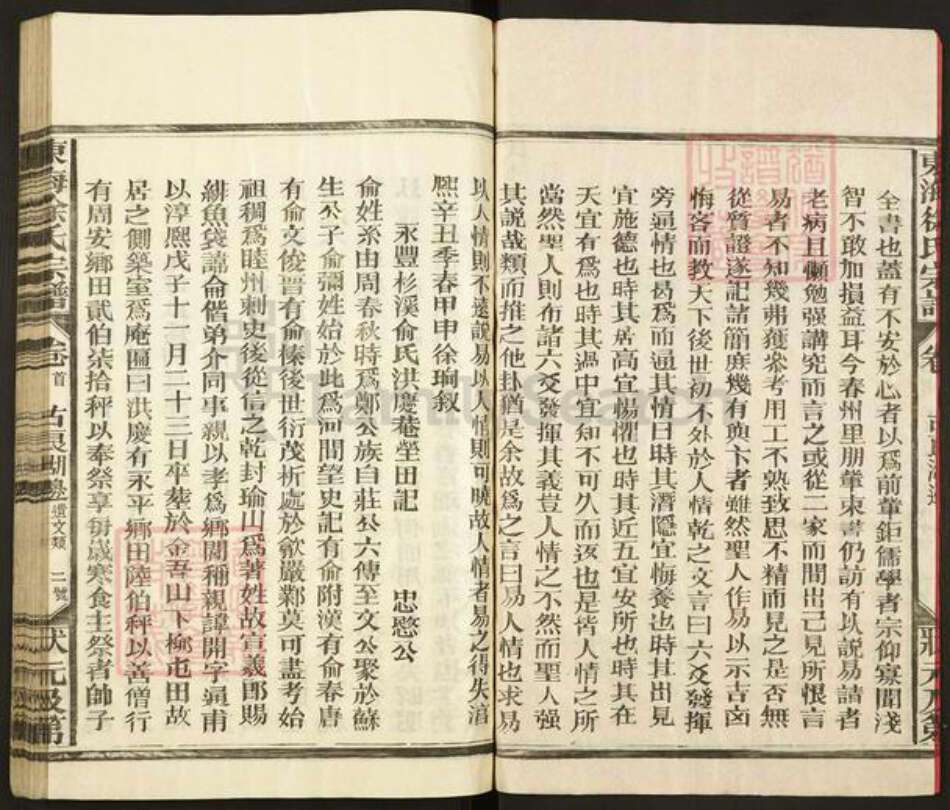 全書也蓋有不安於心者以爲前輩鉅儒學者宗仰寡聞淺
智不敢加損益耳今春州里朋輩柬書仍訪有以說易請者
老病且懶勉强講究而言之或從二家而間出己見所恨言
易者不知幾弗獲參考用工不熟致思不精而見之是否無
從質證遂記諸簡庶幾有與卞者雖然聖人作易以示吉凶
悔吝而教天下後世初不外於人情乾之文言曰六爻發揮
旁通情也曷爲而通其情曰時其潛隱宜悔養也時其出見
宜施德也時其居高宜惕懼也時其近五宜安所也時其在
天宜有爲也時其過中宜知不可久而返也是皆人情之所
當然聖人則布諸六爻發揮其義豈人情之不然而聖人强
其說哉類而推之他卦猶是余故爲之言曰易人情也求易
以人情則不遠說易以人情則可曉故人情者易之得失淯
熈辛丑季春甲申徐珦叙
永豐杉溪俞氏洪慶菴塋田記 忠愍公
俞姓系由周春秋時爲鄭公族自莊公六傳至文公聚於蘇
生公子俞彌姓始於此爲河間望史記有俞附漢有俞唐
有俞文俊晋有俞榛後世衍茂析處於歙嚴鄴莫可盡考始
祖稠爲睦州刺史後從信之乾封瑜山爲著姓故宣義郎賜
緋魚袋諱侖偕弟介同事親以孝爲鄉閭稱親諱開字通甫
以淳熈戊子十一月二十三日卒塟於金吾山下㮋屯田故
居之側築室爲庵匾曰洪慶有永平鄉田陸伯秤以善僧行
有周安鄉田貳伯柒拾秤以奉祭享併歲寒食主祭者帥子
東海徐氏宗譜 卷首 古良湖邊遺文類 二號 狀元及第